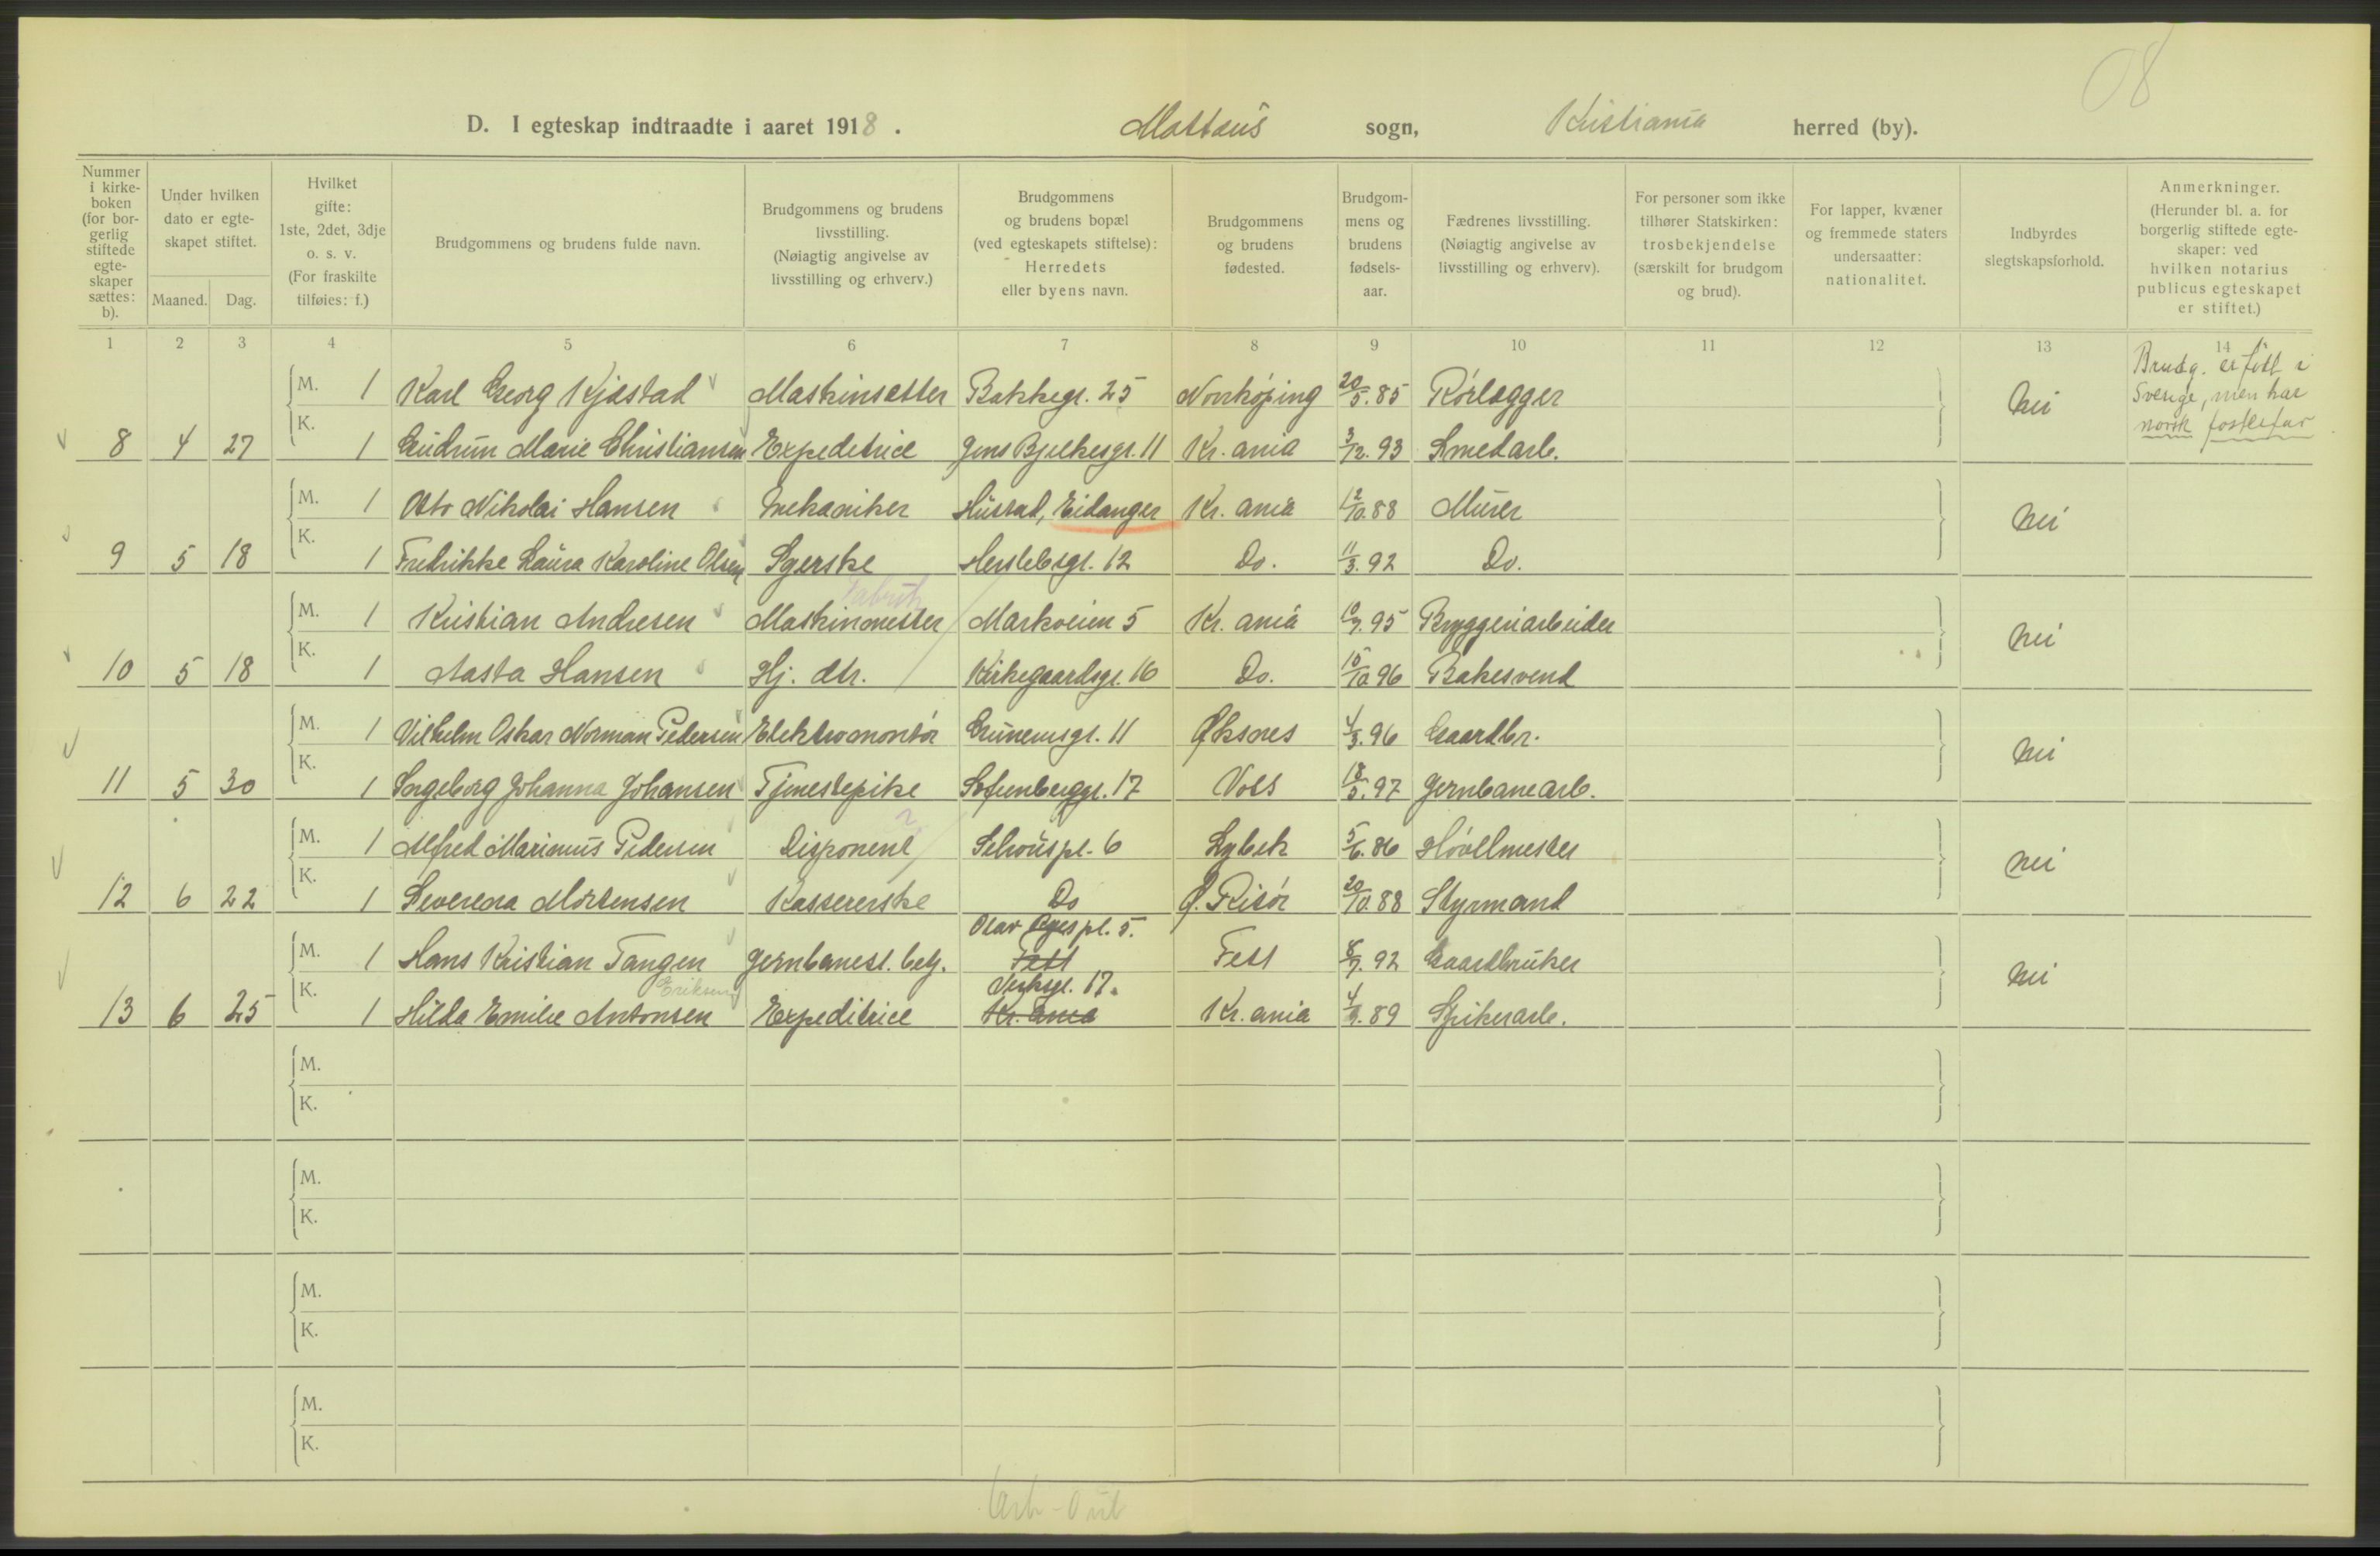 08
D. I egteskap indtraadte i aaret 1918. Mattæus sogn, Kristiania herred (by).
Nummer i kirkeboken (for borgerlig stiftede egteskaper sættes: b).
Under hvilken dato er egteskapet stiftet.
Maaned. Dag.
Hvilket gifte: 1ste, 2det, 3dje o. s. v. (For fraskilte tilføies: f.)
Brudgommens og brudens fulde navn.
Brudgommens og brudens livsstilling. (Nøiagtig angivelse av livsstilling og erhverv.)
Brudgommens og brudens bopæl (ved egteskapets stiftelse): Herredets eller byens navn.
Brudgommens og brudens fødested.
Brudgommens og brudens fødselsaar.
Fædrenes livsstilling. (Nøiagtig angivelse av livsstilling og erhverv).
For personer som ikke tilhører Statskirken: trosbekjendelse (særskilt for brudgom og brud).
For lapper, kvæner og fremmede staters undersaatter: nationalitet.
Indbyrdes slegtskapsforhold.
Anmerkninger. (Herunder bl. a. for borgerlig stiftede egteskaper: ved hvilken notarius publicus egteskapet er stiftet.)
1 2 3 4 5 6 7 8 9 10 11 12 13 14
M. 1 Karl Georg Kjæstad Maskinsetter Bakkegt. 25 Norrköping 20/5.85 Rörlægger nei Brudg. er født i Sverige, men har norsk fosterfar
8 4 27 K. 1 Gudrun Marie Christiansen Expeditrice Jens Bjelkesgt. 11 Kr.ania 3/12.93 Smedarb.
M. 1 Otto Nikolai Hansen Mekaniker Hustad, Eidanger Kr.ania 12/10.88 Murer nei
9 5 18 K. 1 Fredrikke Laura Karoline Olsen Syerske Herslebsgt. 12 Do. 11/3.92 Do.
Fabrik
M. 1 Kristian Andresen Maskinmester Markveien 5 Kr.ania 10/7.95 Bryggeriarbeider nei
10 5 18 K. 1 Aasta Hansen Hj. dtr. Kirkegaardsgt. 16 Do. 15/10.96 Bakersvend
M. 1 Vilhelm Oskar Norman Pedersen Elektromontör Grünersgt. 11 Øksnes 4/3.96 Gaardbr. nei
11 5 30 K. 1 Ingeborg Johanna Johansen Tjenestepike Sofienberggt. 17 Voss 18/5.97 Jernbanearb.
M. 1 Alfred Marinius Pedersen Disponent Schouspl. 6 Lybek 5/6.86 Hövelmester nei
12 6 22 K. 1 Severena Mortensen Kassererske Do Ø. Risör 20/10.88 Styrmand
Olav Ryes pl. 5.
M. 1 Hans Kristian Tangen Jernbanest. betj. Fett Fett 8/7.92 Gaardbruker nei
Eriksen Verksgt. 17.
13 6 25 K. 1 Hilda Emilie Antonsen Expeditrice Kr.ania Kr.ania 4/9.89 Spikerarb.
M.
K.
M.
K.
M.
K.
M.
K.